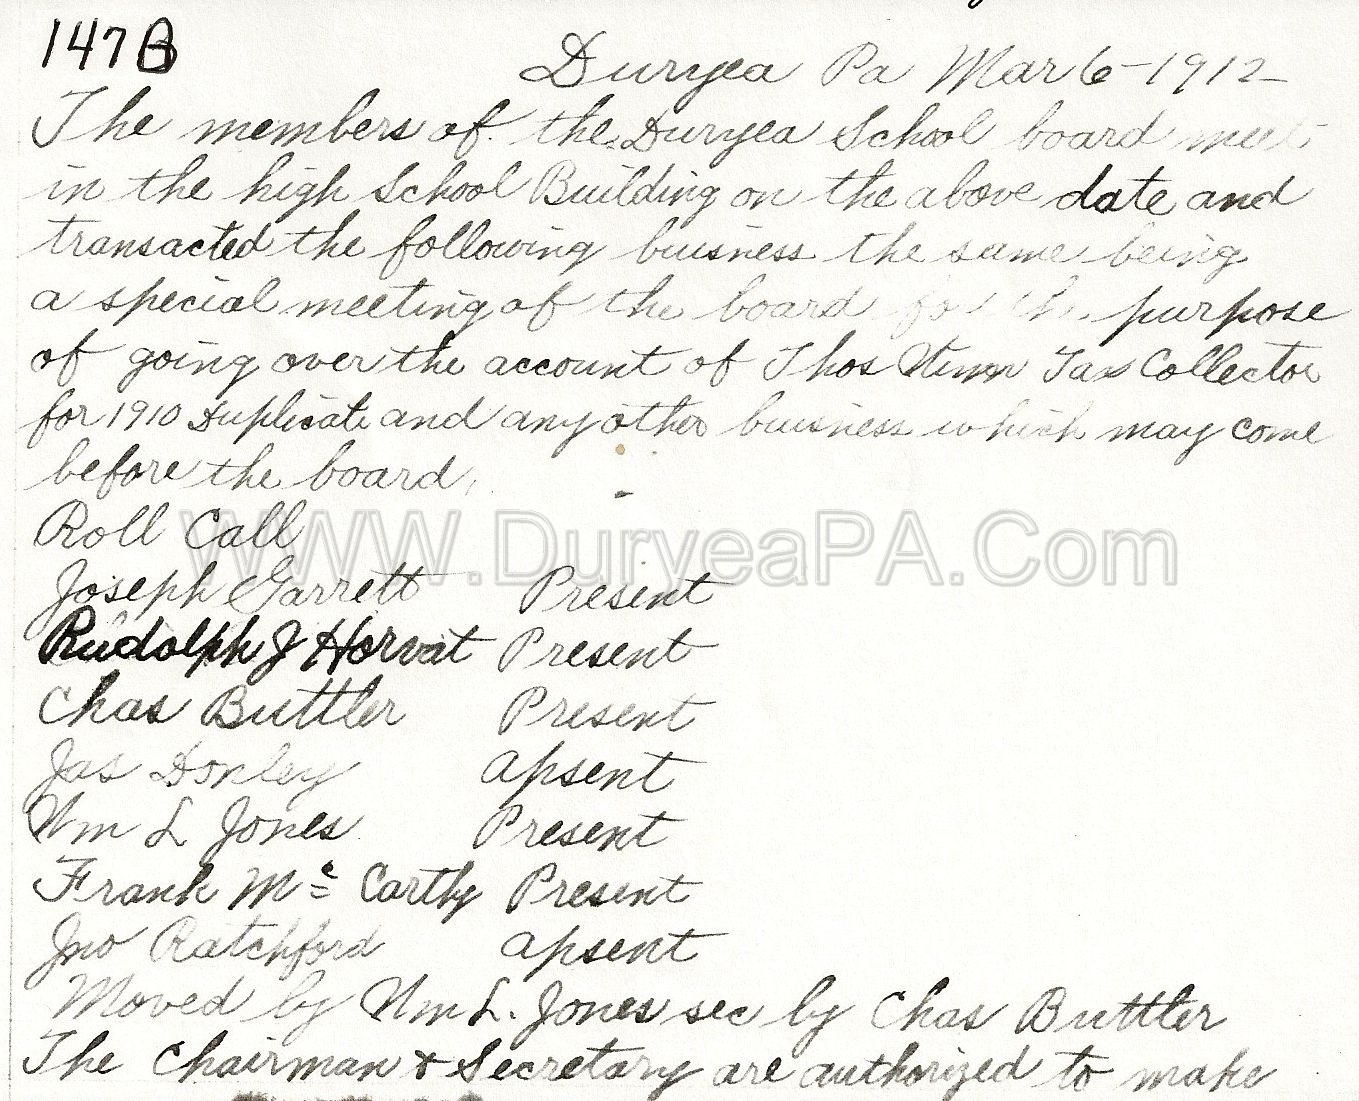 147B
Duryea Pa Mar 6-1912
The members of the Duryea School board meet
in the high School Building on the above date and
transacted the following buisness the same being
a special meeting of the board for the purpose
of going over the account of Thos Tax Collector
for 1910 Duplicate and any other buisness which may come
before the board.
Roll Call
WWW.DuryeaPA.Com
Joseph Garrett Present
Rudolph J Horvat Present
Chas Buttler Present
Jas Donley apsent
Wm L Jones Present
Frank Mc Carthy Present
Jno Ratchford apsent
Moved by Wm L. Jones sec by Chas Buttler
The Chairman & Secretary are authorized to make